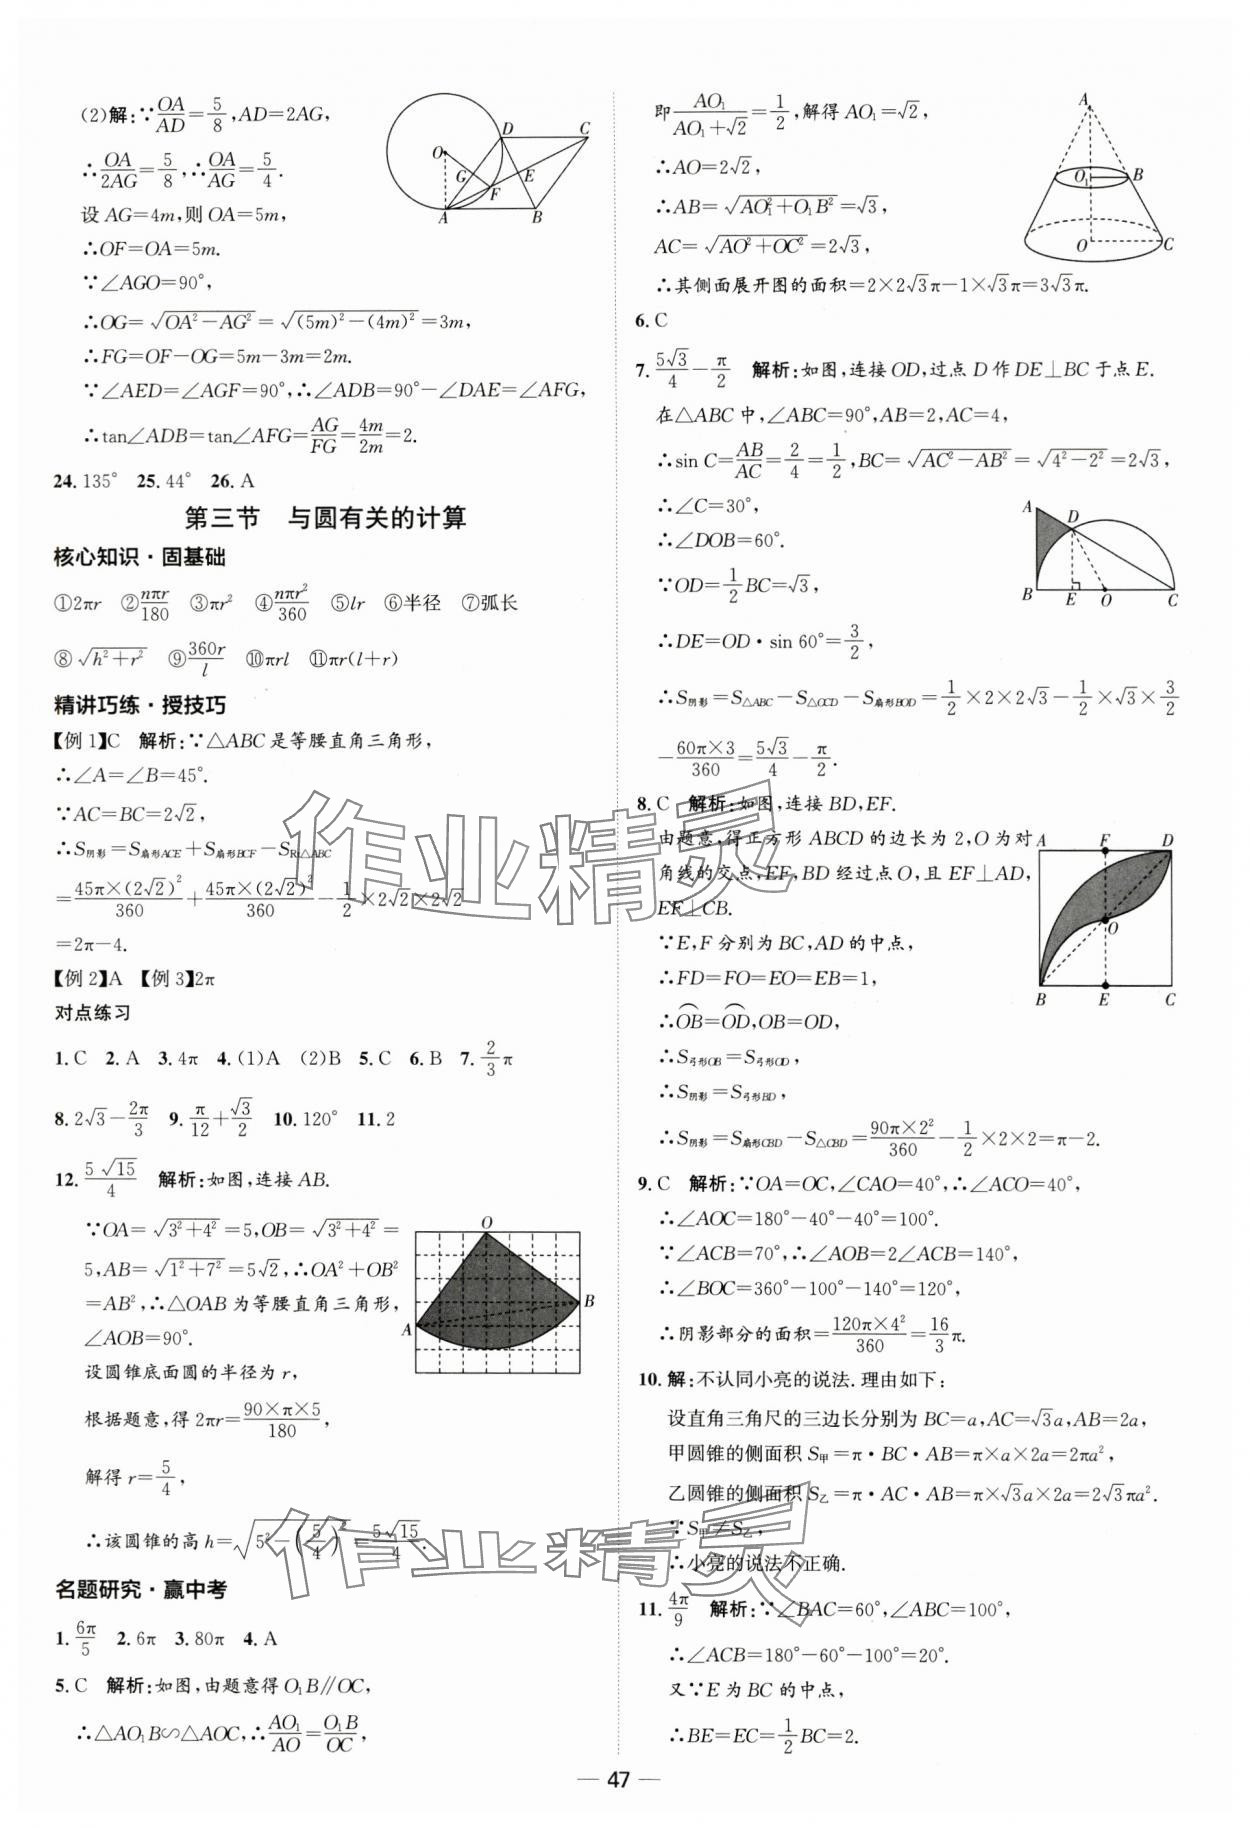 (2)解:∵OA/AD=5/8,AD=2AG,
∴OA/2AG=5/8,∴OA/AG=5/4.
设 AG=4m,则 OA=5m,
∴OF=OA=5m.
∵∠AGO=90°,
∴OG=√(OA²-AG²)=√((5m)²-(4m)²)=3m,
∴FG=OF-OG=5m-3m=2m.
∵∠AED=∠AGF=90°,∴∠ADB=90°-∠DAE=∠AFG,
∴tan∠ADB=tan∠AFG=AG/FG=4m/2m=2.
D C O G E F A B
24. 135° 25. 44° 26. A
第三节 与圆有关的计算
核心知识·固基础
①2πr ②nπr/180 ③πr² ④nπr²/360 ⑤lr ⑥半径 ⑦弧长
⑧√(h²+r²) ⑨360r/l ⑩πrl ⑪πr(l+r)
精讲巧练·授技巧
【例1】C 解析:∵△ABC是等腰直角三角形,
∴∠A=∠B=45°.
∵AC=BC=2√2,
∴S阴影=S扇形ACE+S扇形BCF-SRt△ABC
=45π×(2√2)²/360+45π×(2√2)²/360-1/2×2√2×2√2
=2π-4.
【例2】A 【例3】2π
对点练习
1. C 2. A 3. 4π 4. (1)A (2)B 5. C 6. B 7. 2/3π
8. 2√3-2π/3 9. π/12+√3/2 10. 120° 11. 2
12. 5√15/4 解析:如图,连接 AB.
∵OA=√(3²+4²)=5,OB=√(3²+4²)=
5,AB=√(1²+7²)=5√2,∴OA²+OB²
=AB²,∴△OAB 为等腰直角三角形,
∠AOB=90°.
设圆锥底面圆的半径为 r,
根据题意,得 2πr=90×π×5/180,
解得 r=5/4,
∴该圆锥的高 h=√(5²-(5/4)²)=5√15/4.
O A B
名题研究·赢中考
1. 6π/5 2. 6π 3. 80π 4. A
5. C 解析:如图,由题意得 O₁B∥OC,
∴△AO₁B∽△AOC,∴AO₁/AO=O₁B/OC,
即AO₁/(AO₁+√2)=1/2,解得 AO₁=√2,
∴AO=2√2,
∴AB=√(AO₁²+O₁B²)=√3,
AC=√(AO²+OC²)=2√3,
∴其侧面展开图的面积=2×2√3π-1×√3π=3√3π.
A O₁ B O C
6. C
7. 5√3/4-π/2 解析:如图,连接 OD,过点 D 作 DE⊥BC 于点 E.
在△ABC 中,∠ABC=90°,AB=2,AC=4,
∴sin C=AB/AC=2/4=1/2,BC=√(AC²-AB²)=√(4²-2²)=2√3,
∴∠C=30°,
∴∠DOB=60°.
∵OD=1/2BC=√3,
∴DE=OD·sin 60°=3/2,
A D B E O C
∴S阴影=S△ABC-S△OCD-S扇形BOD=1/2×2×2√3-1/2×√3×3/2
-60π×3/360=5√3/4-π/2.
8. C 解析:如图,连接 BD,EF.
由题意,得正方形 ABCD 的边长为 2,O 为对
角线的交点,EF,BD 经过点 O,且 EF⊥AD,
EF⊥CB.
∵E,F 分别为 BC,AD 的中点,
∴FD=FO=EO=EB=1,
∴⌒OB=⌒OD,OB=OD,
∴S弓形OB=S弓形OD,
∴S阴影=S弓形BD,
∴S阴影=S扇形CBD-S△CBD=90π×2²/360-1/2×2×2=π-2.
A F D O B E C
9. C 解析:∵OA=OC,∠CAO=40°,∴∠ACO=40°,
∴∠AOC=180°-40°-40°=100°.
∵∠ACB=70°,∴∠AOB=2∠ACB=140°,
∴∠BOC=360°-100°-140°=120°,
∴阴影部分的面积=120π×4²/360=16/3π.
10. 解:不认同小亮的说法.理由如下:
设直角三角尺的三边长分别为 BC=a,AC=√3a,AB=2a,
甲圆锥的侧面积 S甲=π·BC·AB=π×a×2a=2πa²,
乙圆锥的侧面积 S乙=π·AC·AB=π×√3a×2a=2√3πa².
∵S甲≠S乙,
∴小亮的说法不正确.
11. 4π/9 解析:∵∠BAC=60°,∠ABC=100°,
∴∠ACB=180°-60°-100°=20°.
又∵E 为 BC 的中点,
∴BE=EC=1/2BC=2.
作业精灵
作业精灵
— 47 —